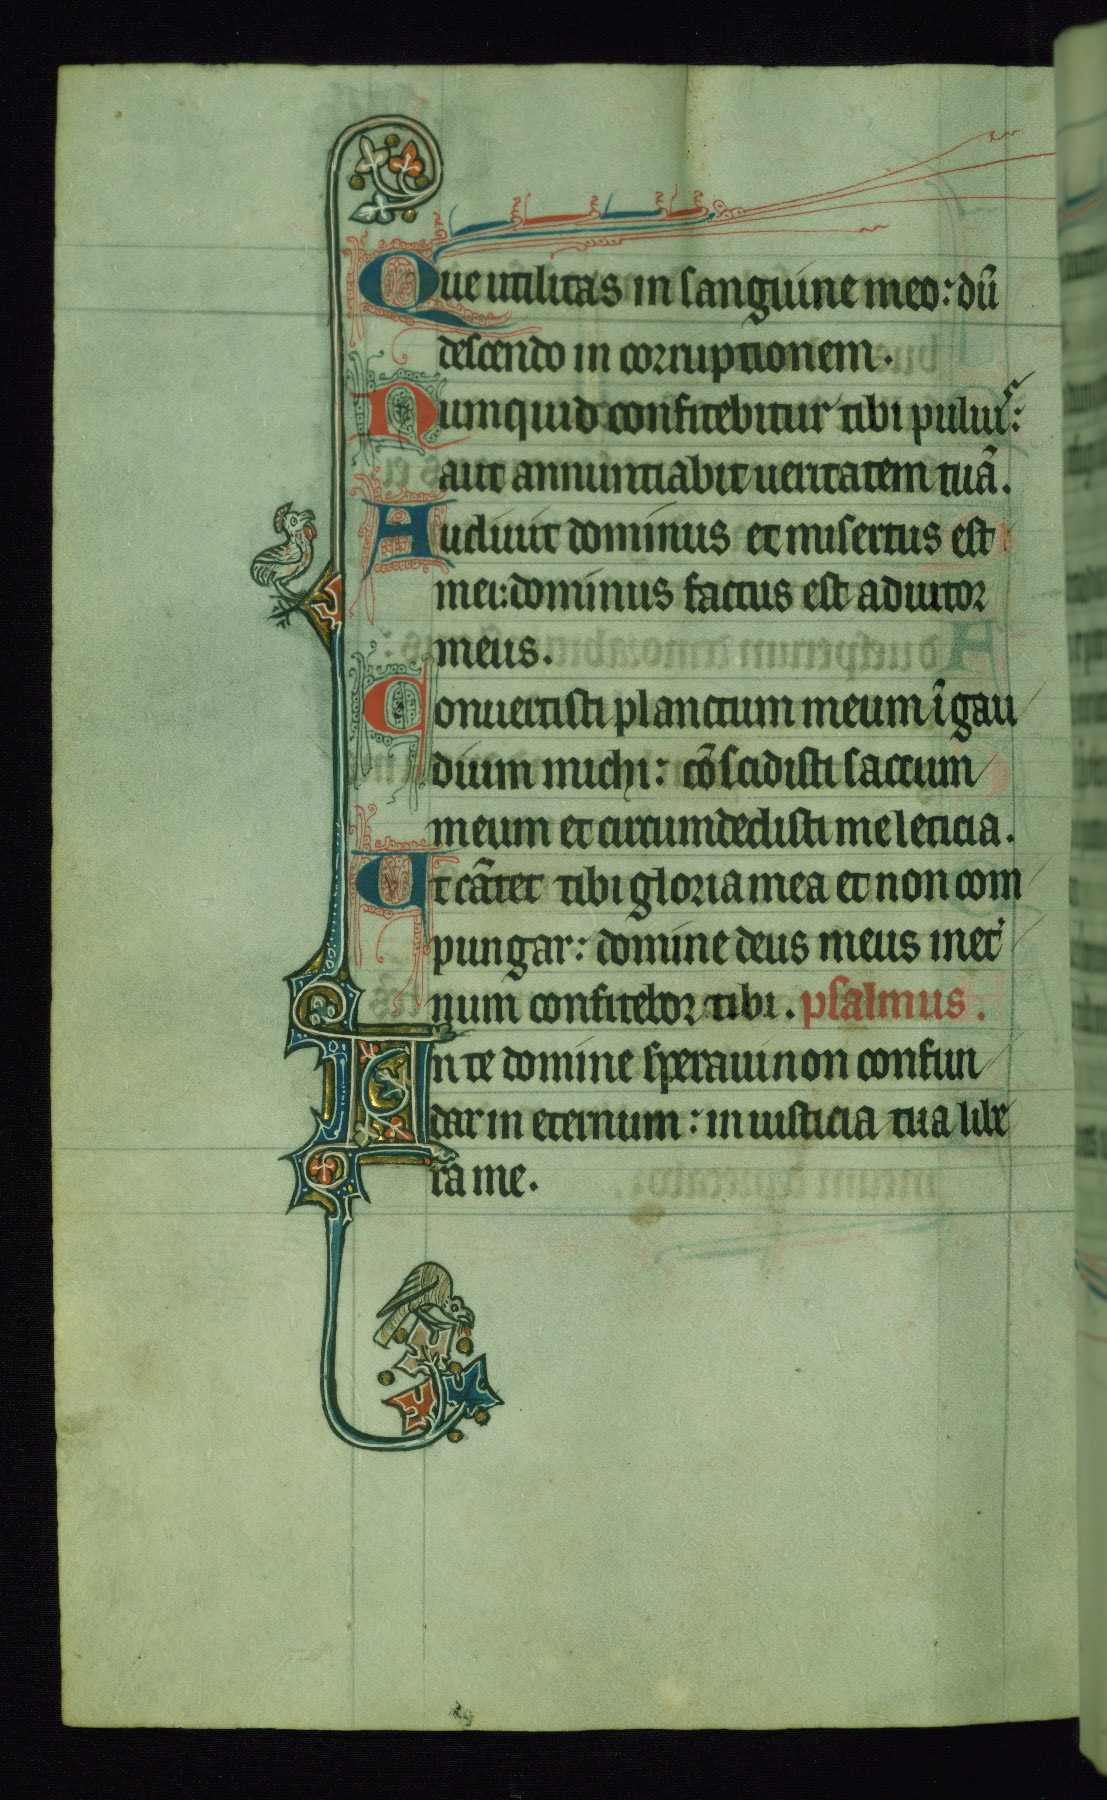 Que utilitas in sanguine meo: dū
descendo in corruptionem.
Numquid confitebitur tibi puluis:
aut annuntiabit ueritatem tuā.
Audiuit dominus et misertus est
mei: dominus factus est adiutor
meus.
Conuertisti planctum meum ī gau
dium michi: cōscidisti saccum
meum et circumdedisti me leticia.
Ut cātet tibi gloria mea et non com
pungar: domine deus meus in et
num confitebor tibi. psalmus.
In te domine speraui non confun
dar in eternum: in iusticia tua libe
ra me.